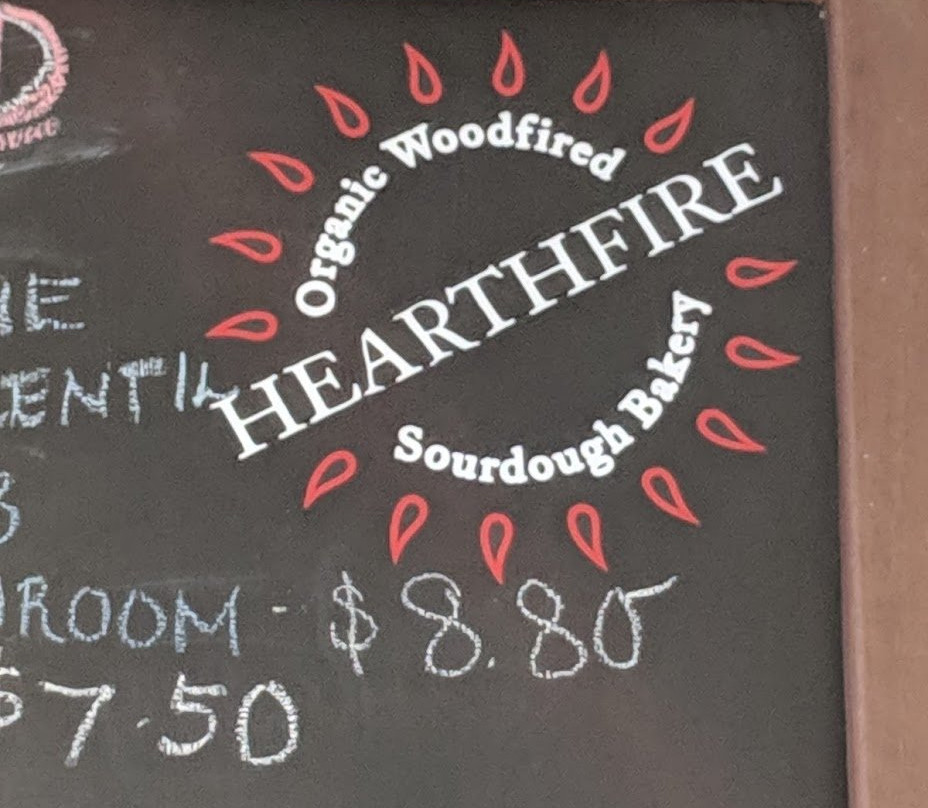 Organic Woodfired
HEARTHFIRE
Sourdough Bakery
ROOM - $8.80
$7.50